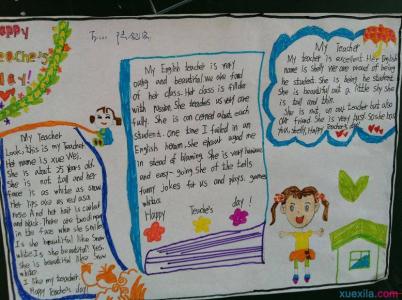 Happy
Teacher's
Day!
To:
My English teacher is very
and beautiful. we are fond
of her class. Her class is filled
with She teaches us very care
fully. She is con cerned about each
student. one time I failed in an
English She encourd aged me
in stead of blaming. She is very humorous
and easy-going She of the tells
funny jokes for us and plays games
Happy Teache's day!
My Teacher
My teacher is excellent. Her English
name is We are proud of being
he student. She is being he student.
She is beautiful but a little shy She
is tall and thin.
She is not on our teacher but also
our friend She is very
Happy Teacher's day!
My Teacher
Look, this is my Teacher
Her name is Xue Wei.
She is about 25 years old.
She is not tall and her
face is as white as snow.
Her lips are as red as a
rose And her hair is
and black. There are two
in the face when she smiles
Is she beautiful like Snow
White Is she beautiful? Yes.
She is beautiful like Snow
white
I like my teacher.
Happy Teache's day!
xuexila.com